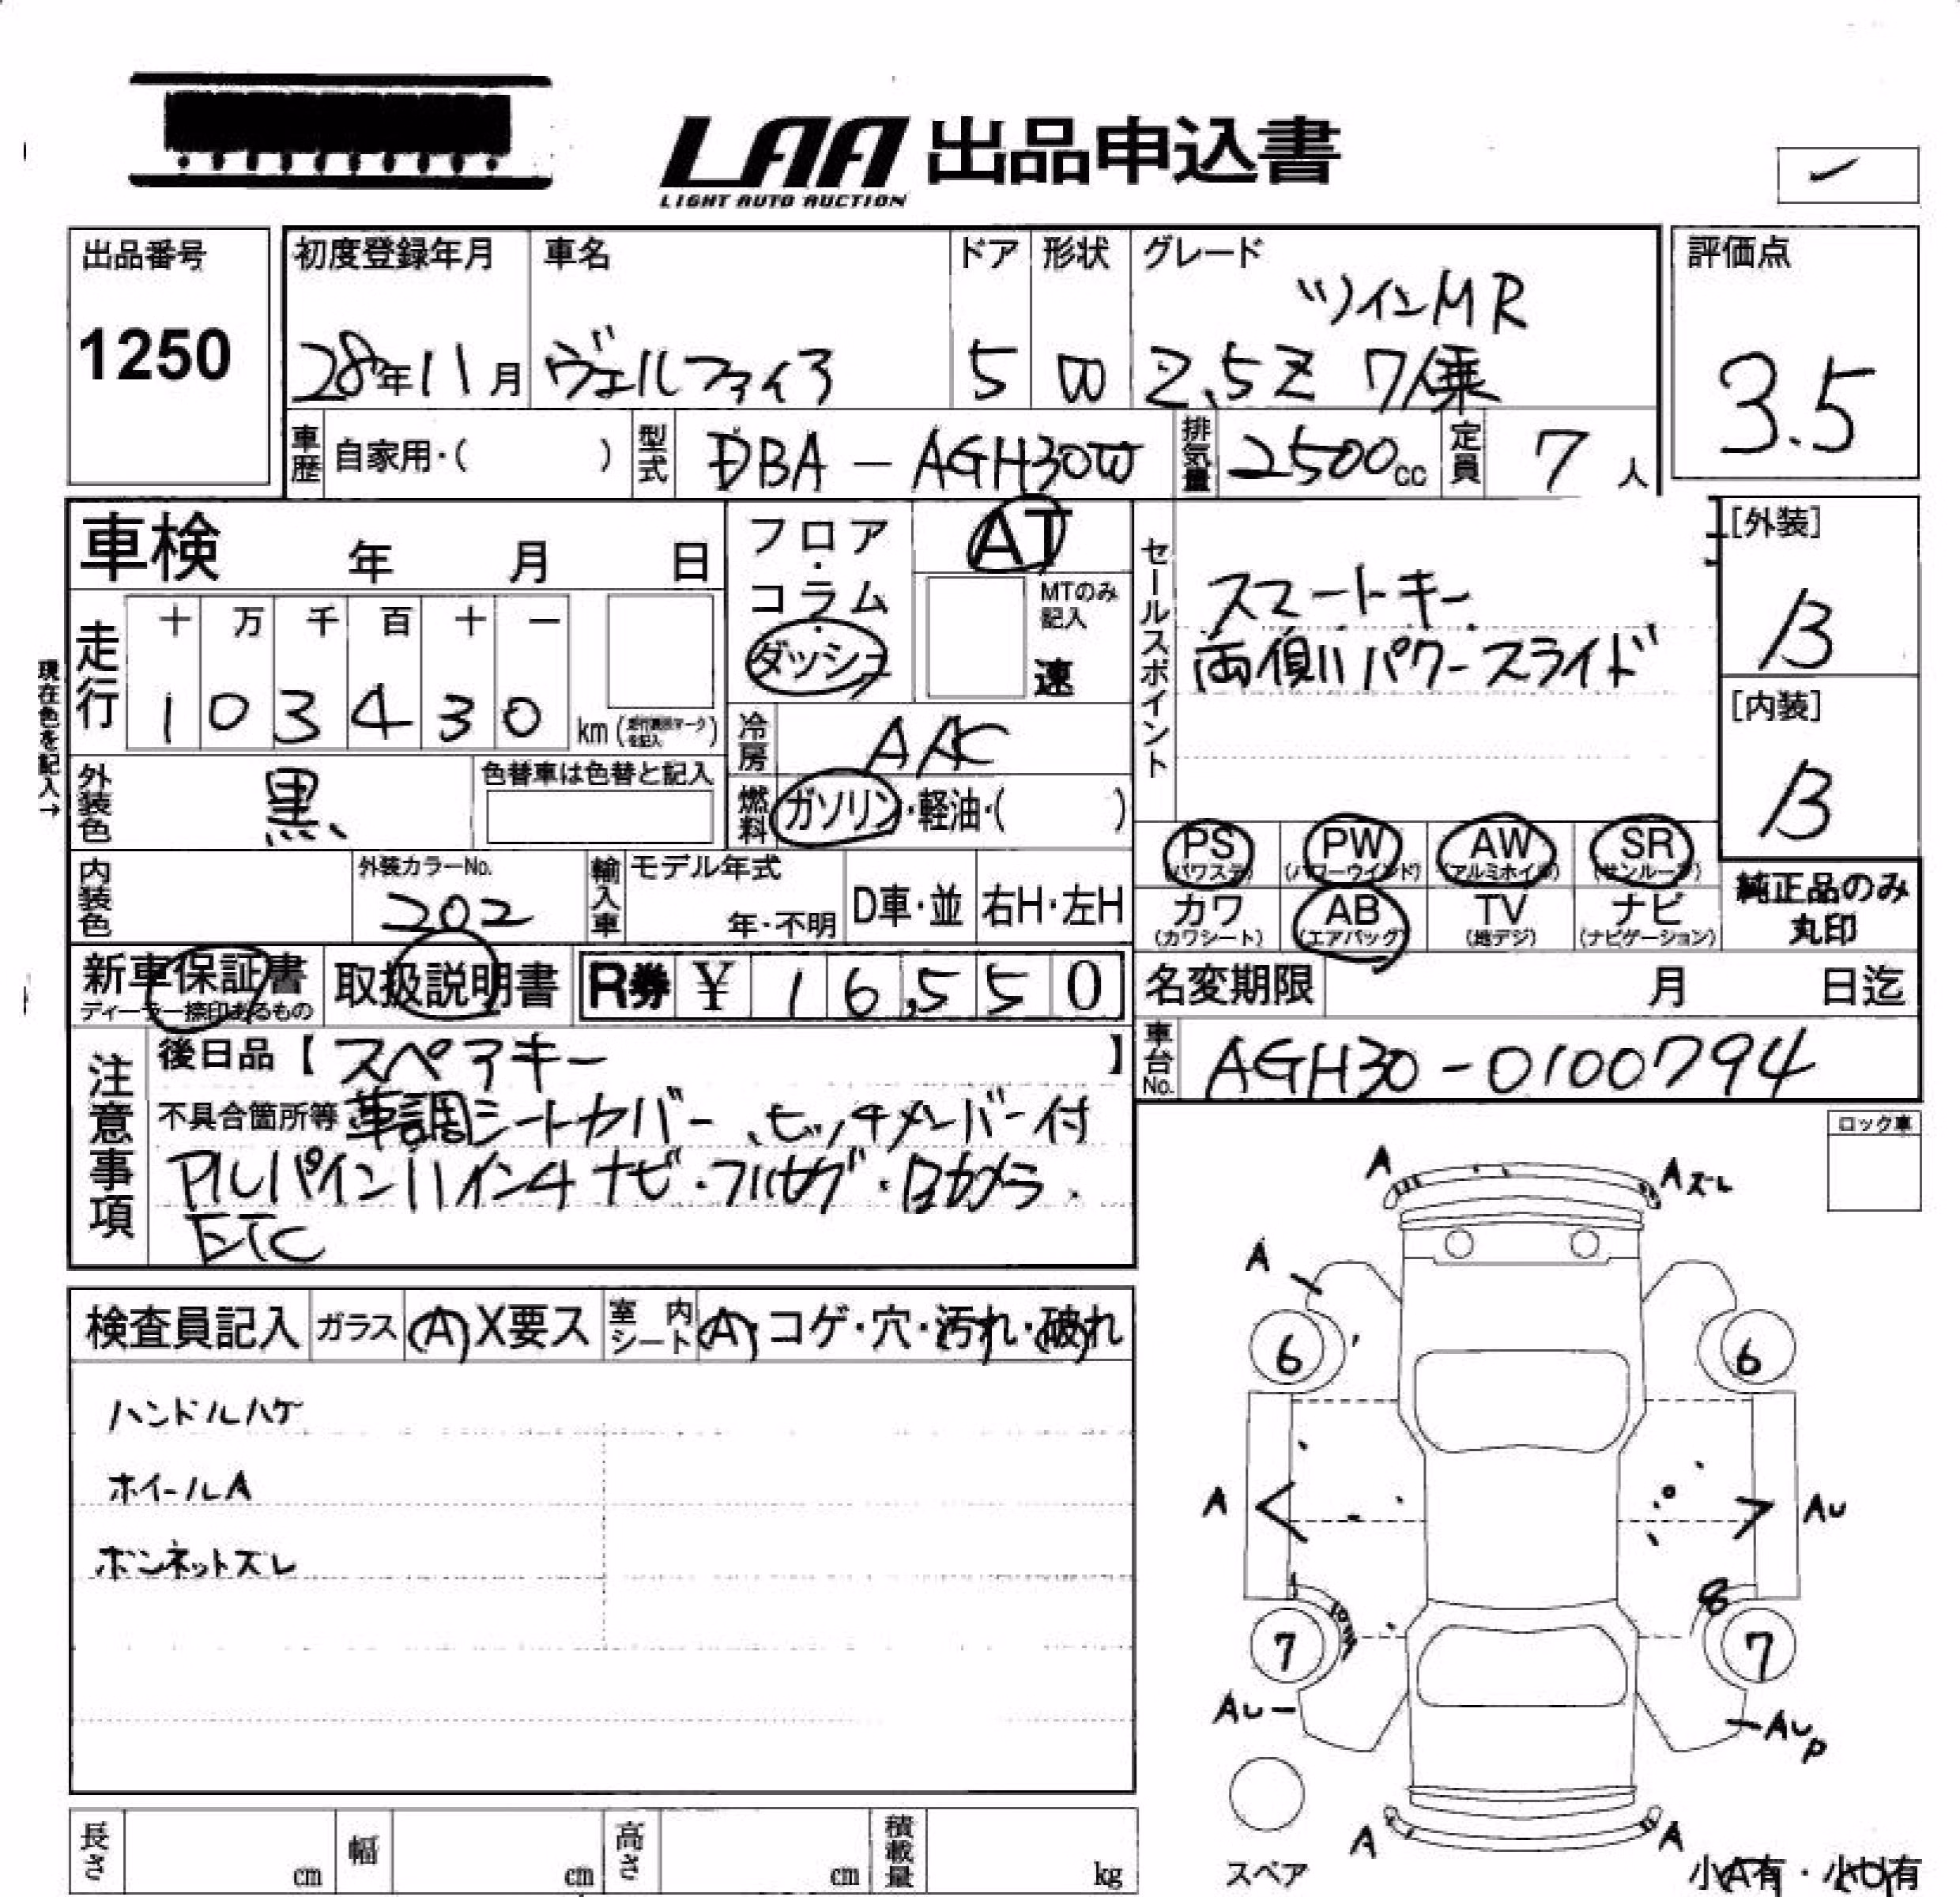 LAA 出品申込書
LIGHT AUTO AUCTION
出品番号
1250
初度登録年月
28年11月
車名
ヴェルファイア
ドア
5
形状
W
グレード
ツインMR
2.5Z 7人乗
評価点
3.5
車歴 自家用・( )
型式 DBA-AGH30W
排気量 2500cc
定員 7人
車検 年 月 日
現在色を記入→
走行 十 万 千 百 十 一
1 0 3 4 3 0 km
フロア・コラム・ダッシュ
AT
MTのみ記入
速
冷房 AAC
燃料 ガソリン・軽油・( )
外装色 黒
色替車は色替と記入
内装色
外装カラーNo.
202
輸入車
モデル年式
年・不明
D車・並
右H・左H
セールスポイント
スマートキー
両側パワースライド
[外装]
B
[内装]
B
PS (パワステ) PW (パワーウインド) AW (アルミホイル) SR (サンルーフ)
カワ (カワシート) AB (エアバッグ) TV (地デジ) ナビ (ナビゲーション)
純正品のみ丸印
新車保証書
ディーラー捺印あるもの
取扱説明書
R券 ¥ 16,550
名変期限 月 日迄
車台No. AGH30-0100794
注意事項
後日品【スペアキー】
不具合箇所等 革調シートカバー、ヒッチメンバー付
アルパイン11インチナビ・フルセグ・Bカメラ・
ETC
ロック車
検査員記入
ガラス A X要ス
室内シート A・コゲ・穴・汚れ・破れ
ハンドルハゲ
ホイールA
ボンネットズレ
A
Aズレ
A
6
6
A
AU
8
7
7
AU
AUP
A
A
スペア
小A有・小U有
長さ cm
幅 cm
高さ cm
積載量 kg